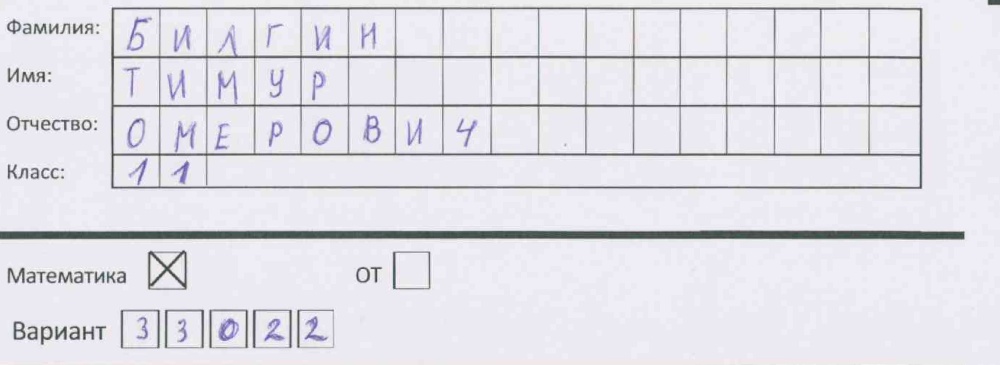 Фамилия: БИЛГИН
Имя: ТИМУР
Отчество: ОМЕРОВИЧ
Класс: 11
Математика ☒ ОТ ☐
Вариант 33022